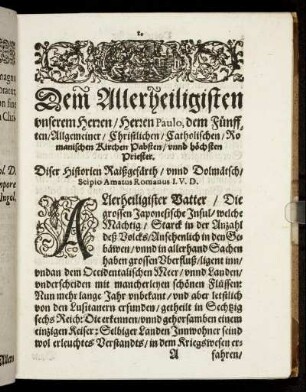 Dem Allerheiligisten
vnserem Herren / Herren Paulo, dem Fünff⸗
ten / Allgemeiner / Christlichen / Catholischen / Ro⸗
manischen Kirchen Pabsten / vnnd höchsten
Priester.
Diser Historien Raißgefärth / vnnd Dolmätsch /
Scipio Amatus Romanus I. V. D.
ALlerheiligister Vatter / Die
grossen Japonesische Insul / welche
Mächtig / Starck in der Anzahl
deß Volcks / Ansehenlich in den Ge⸗
bäwen / vnnd in allerhand Sachen
haben grossen Vberfluß / ligent inn /
vndan dem Occidentalischen Meer / vnnd Landen /
vnderscheiden mit mancherleyen schönen Flüssen:
Nun mehr lange Jahr vnbekant / vnd aber letstlich
von den Lusitanern erfunden / getheilt in Sechtzig
sechs Reich: Die erkennen / vnnd gehorsamben einem
eintzigen Keiser: Selbiger Landen Innwohner seind
wol erleuchtes Verstandts / in dem Kriegswesen er⸗
A fahren /